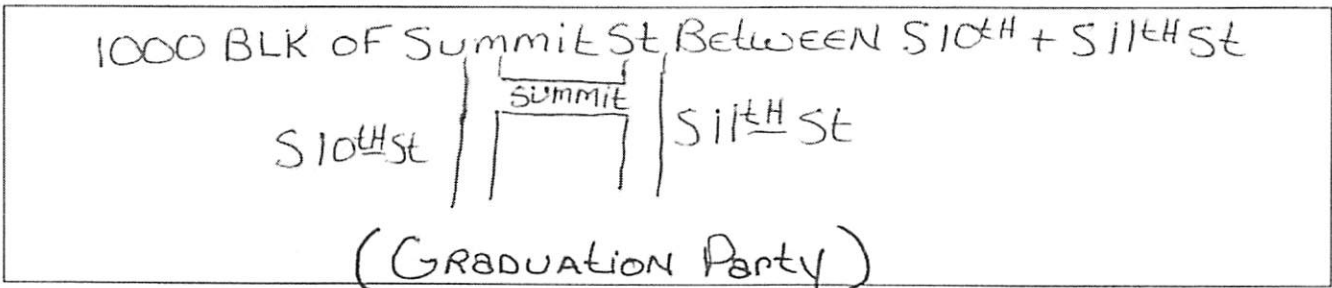 1000 BLK OF Summit St, BetwEEN S 10tH + S 11tH St
Summit
S 10tH St
S 11tH St
(GRaDUAtioN Party)